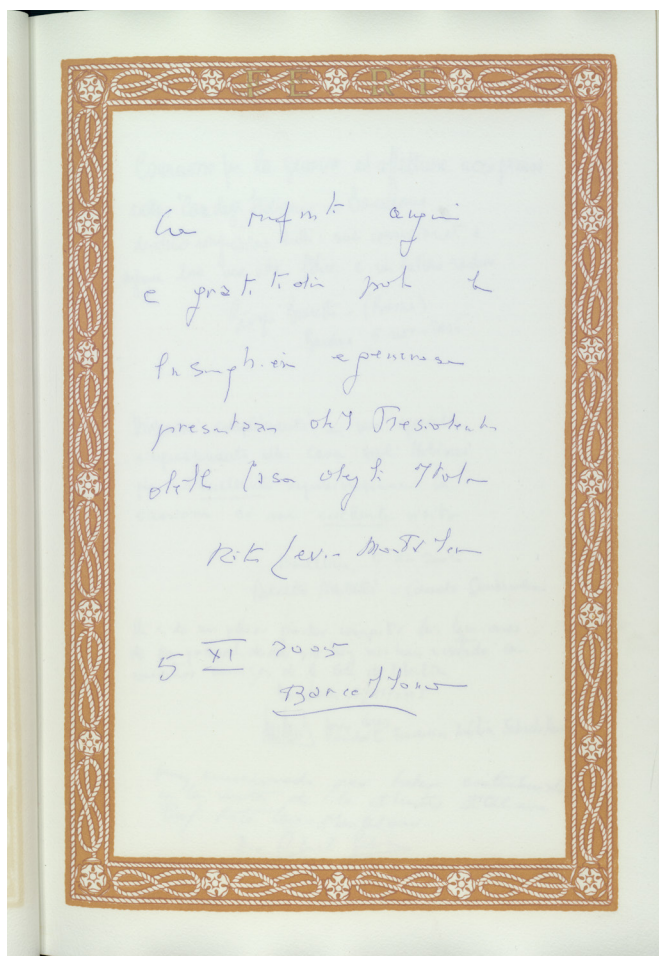 FERT
Con infinit auguri
e gratitudin per la
e generosa
presentazion del Presidente
della Casa degli Itali
Rita Levi-Montalcini
5 XI 2005
Barcellona